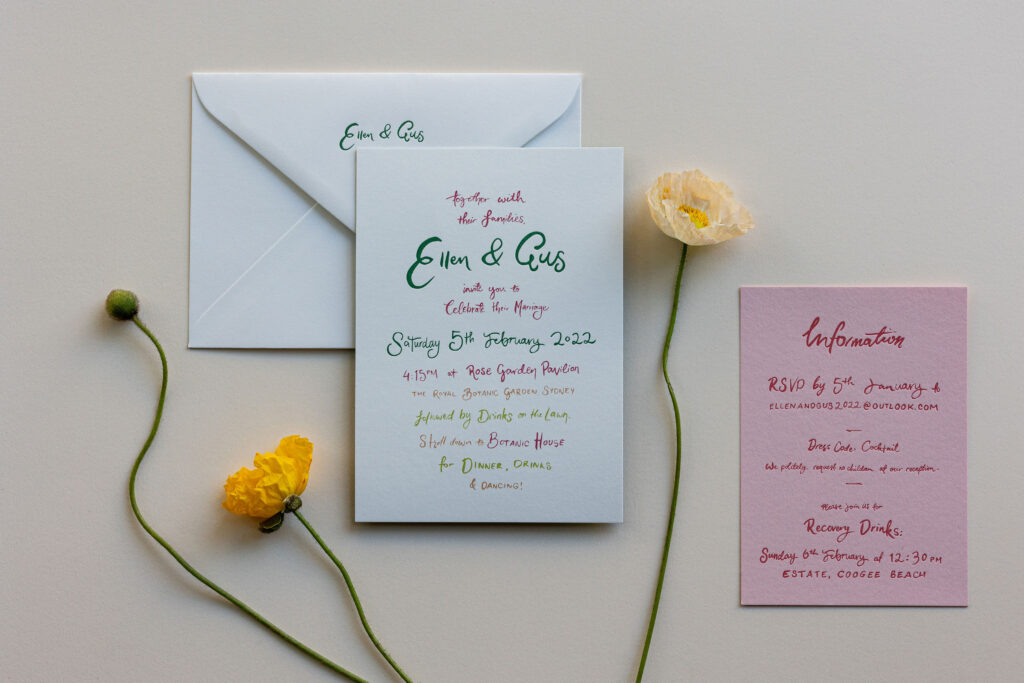 Ellen & Gus
together with
their families,
Ellen & Gus
invite you to
Celebrate their Marriage
Saturday 5th February 2022
4:15PM at Rose Garden Pavilion
THE ROYAL BOTANIC GARDEN SYDNEY
followed by Drinks on the Lawn.
Stroll down to BOTANIC HOUSE
for DINNER, DRINKS
& DANCING!
Information
RSVP by 5th January to
ELLENANDGUS2022@OUTLOOK.COM
Dress Code: Cocktail
We politely request no children at our reception.
Please join us for
Recovery Drinks:
Sunday 6th February at 12:30PM
ESTATE, COOGEE BEACH